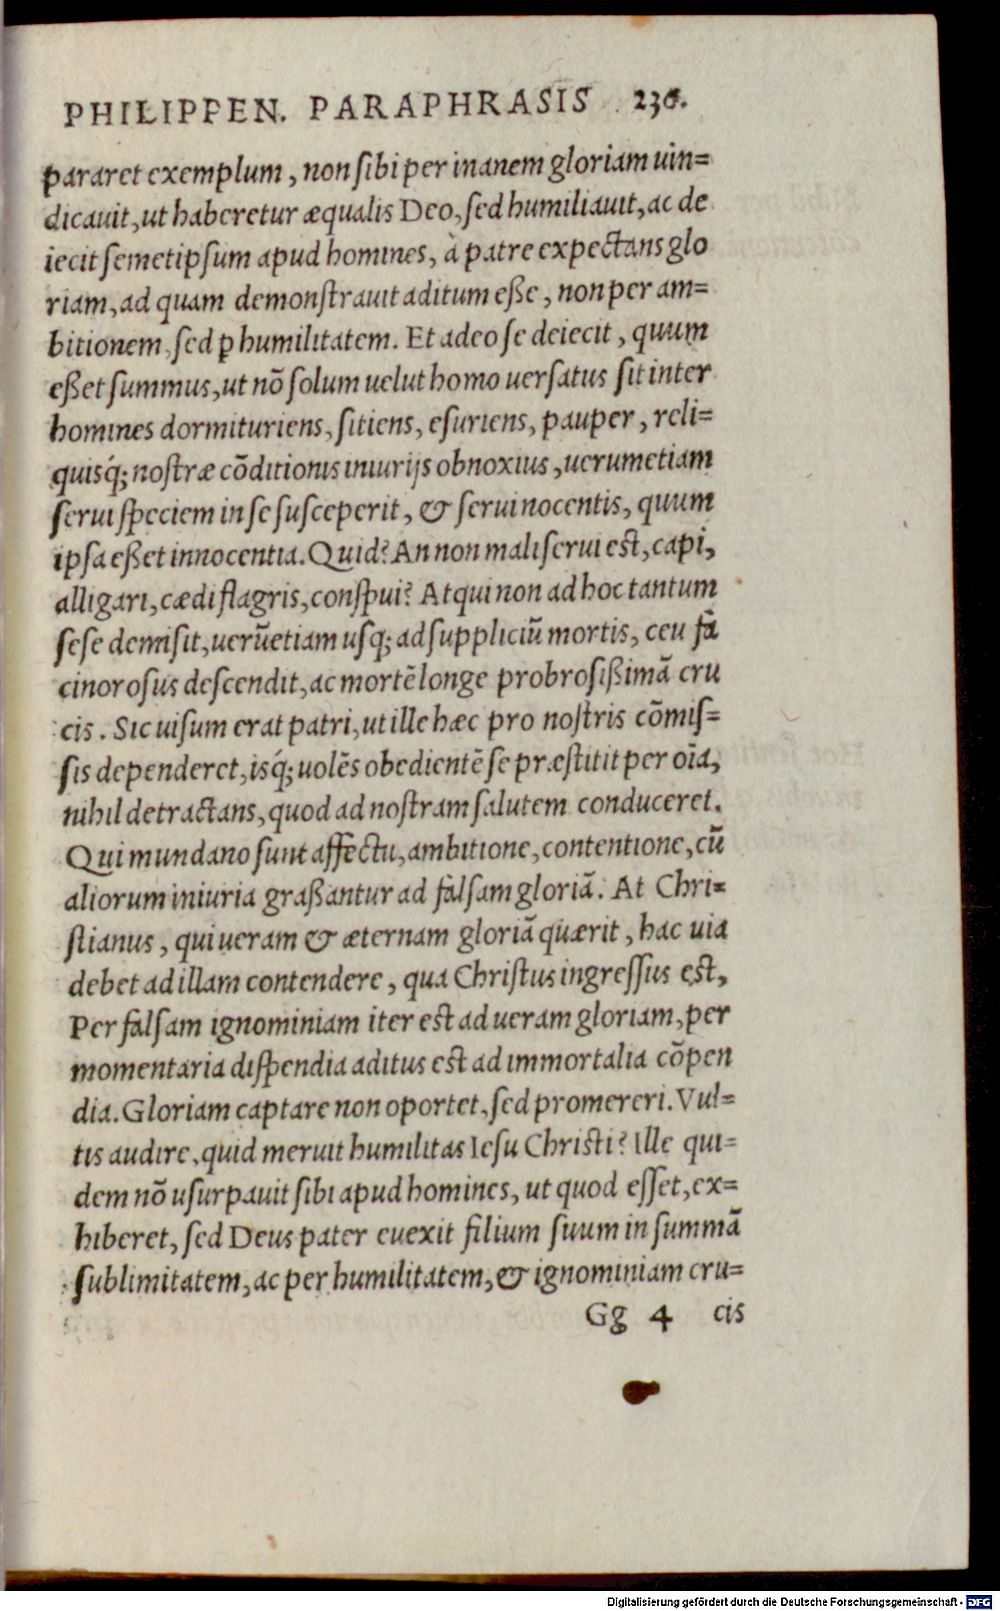 PHILIPPEN. PARAPHRASIS 236.
pararet exemplum, non ſibi per inanem gloriam uin=
dicauit, ut haberetur æqualis Deo, ſed humiliauit, ac de
iecit ſemetipſum apud homines, à patre expectans glo
riam, ad quam demonſtrauit aditum eße, non per am=
bitionem, ſed ꝑ humilitatem. Et adeo ſe deiecit, quum
eßet ſummus, ut nõ ſolum uelut homo uerſatus ſit inter
homines dormituriens, ſitiens, eſuriens, pauper, reli=
quisq́; noſtræ cõditionis iniurijs obnoxius, uerumetiam
ſerui ſpeciem in ſe ſuſceperit, & ſerui nocentis, quum
ipſa eßet innocentia. Quid? An non mali ſerui est, capi,
alligari, cædi flagris, conſpui? Atqui non ad hoc tantum
ſeſe demiſit, uerũetiam uſq; ad ſuppliciũ mortis, ceu fa
cinoroſus deſcendit, ac mortẽ longe probroſißimã cru
cis. Sic uiſum erat patri, ut ille hæc pro noſtris cõmiſ=
ſis dependeret, isq́; uolẽs obedientẽ ſe præſtitit per oĩa,
nihil detractans, quod ad noſtram ſalutem conduceret.
Qui mundano ſunt affectu, ambitione, contentione, cũ
aliorum iniuria graßantur ad falſam gloriã. At Chri=
ſtianus, qui ueram & æternam gloriã quærit, hac uia
debet ad illam contendere, qua Chriſtus ingreſſus est,
Per falſam ignominiam iter est ad ueram gloriam, per
momentaria diſpendia aditus est ad immortalia cõpen
dia. Gloriam captare non oportet, ſed promereri. Vul=
tis audire, quid meruit humilitas Ieſu Chriſti? Ille qui=
dem nõ uſurpauit ſibi apud homines, ut quod eſſet, ex=
hiberet, ſed Deus pater euexit filium ſuum in ſummã
ſublimitatem, ac per humilitatem, & ignominiam cru=
Gg 4 cis
Digitalisierung gefördert durch die Deutsche Forschungsgemeinschaft - DFG